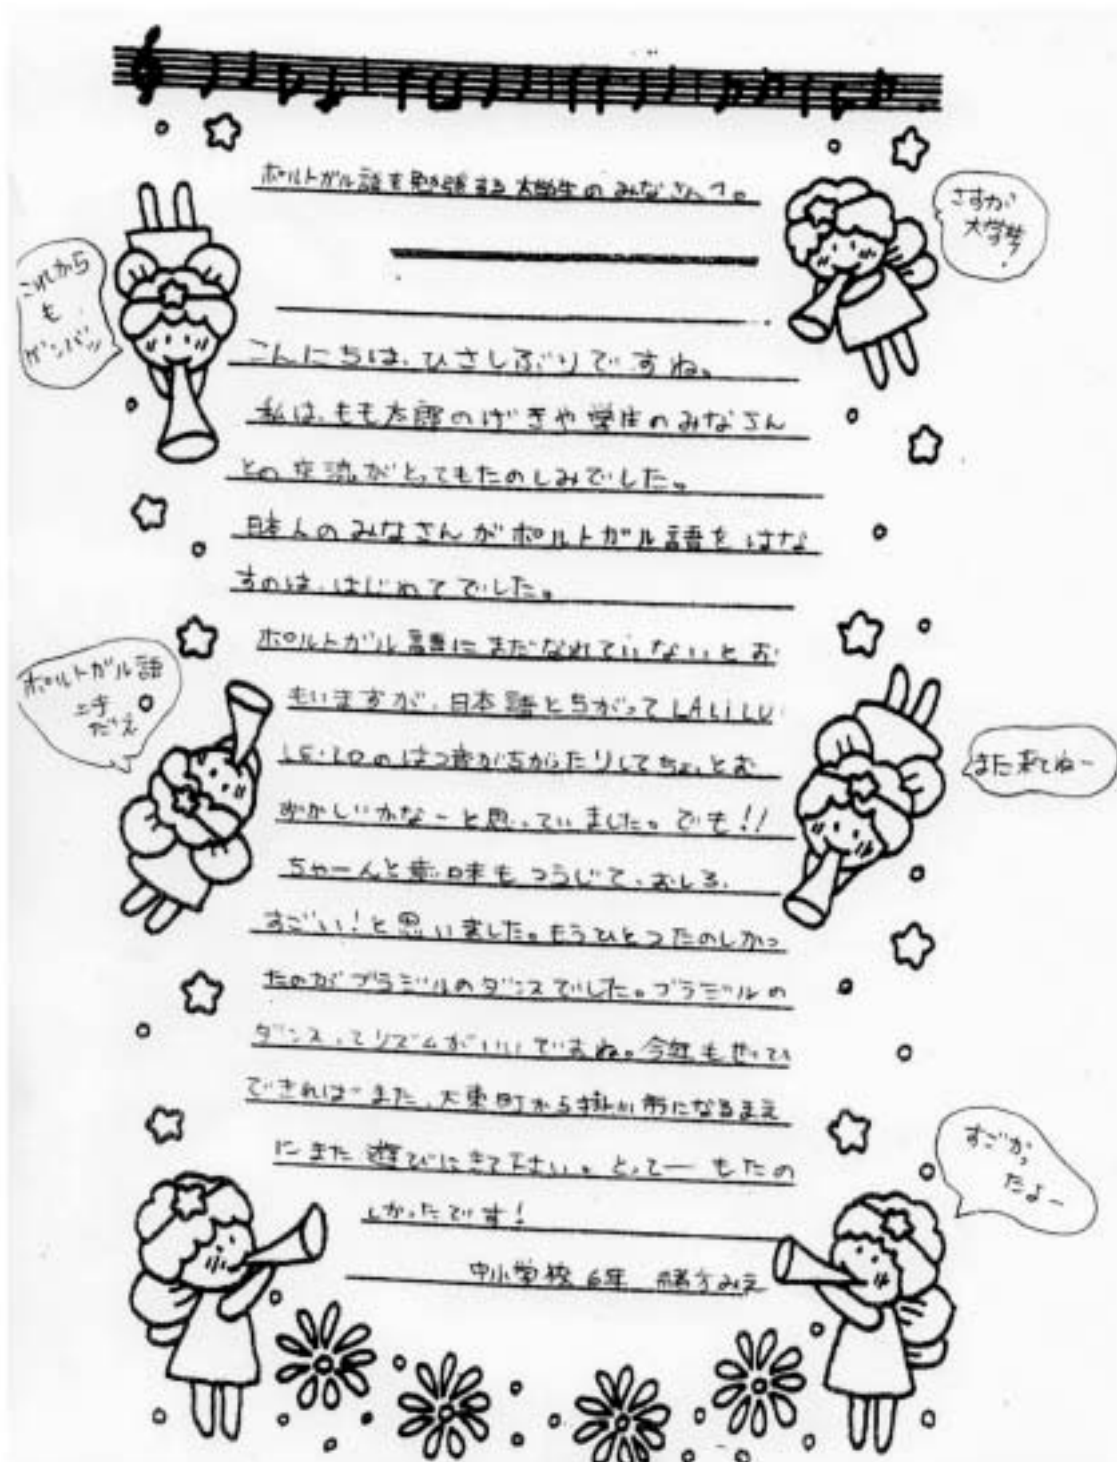 ポルトガル語を勉強する大学生のみなさんへ。
さすが
大学生!
これから
も
ガンバッ
こんにちは、ひさしぶりですね。
私は、もも太郎のげきや学生のみなさん
との交流がとってもたのしみでした。
日本人のみなさんがポルトガル語をはな
すのは、はじめてでした。
ポルトガル語にまだなれていないとお
もいますが、日本語とちがってLA LI LU
LE・LOのはつ音がちがったりしてちょっとむ
ずかしいかなーと思っていました。でも!!
ちゃーんと意味もつうじて、
すごい!と思いました。もうひとつたのしかっ
たのがブラジルのダンスでした。ブラジルの
ダンスってリズムがいいですね。今年もぜひ
できればまた、大東町から掛川市になるまえ
にまた遊びにきて下さい。とってーもたの
しかったです!
中小学校 6年 みえ
ポルトガル語
上手
だネ
また来てねー
すごかっ
たよー